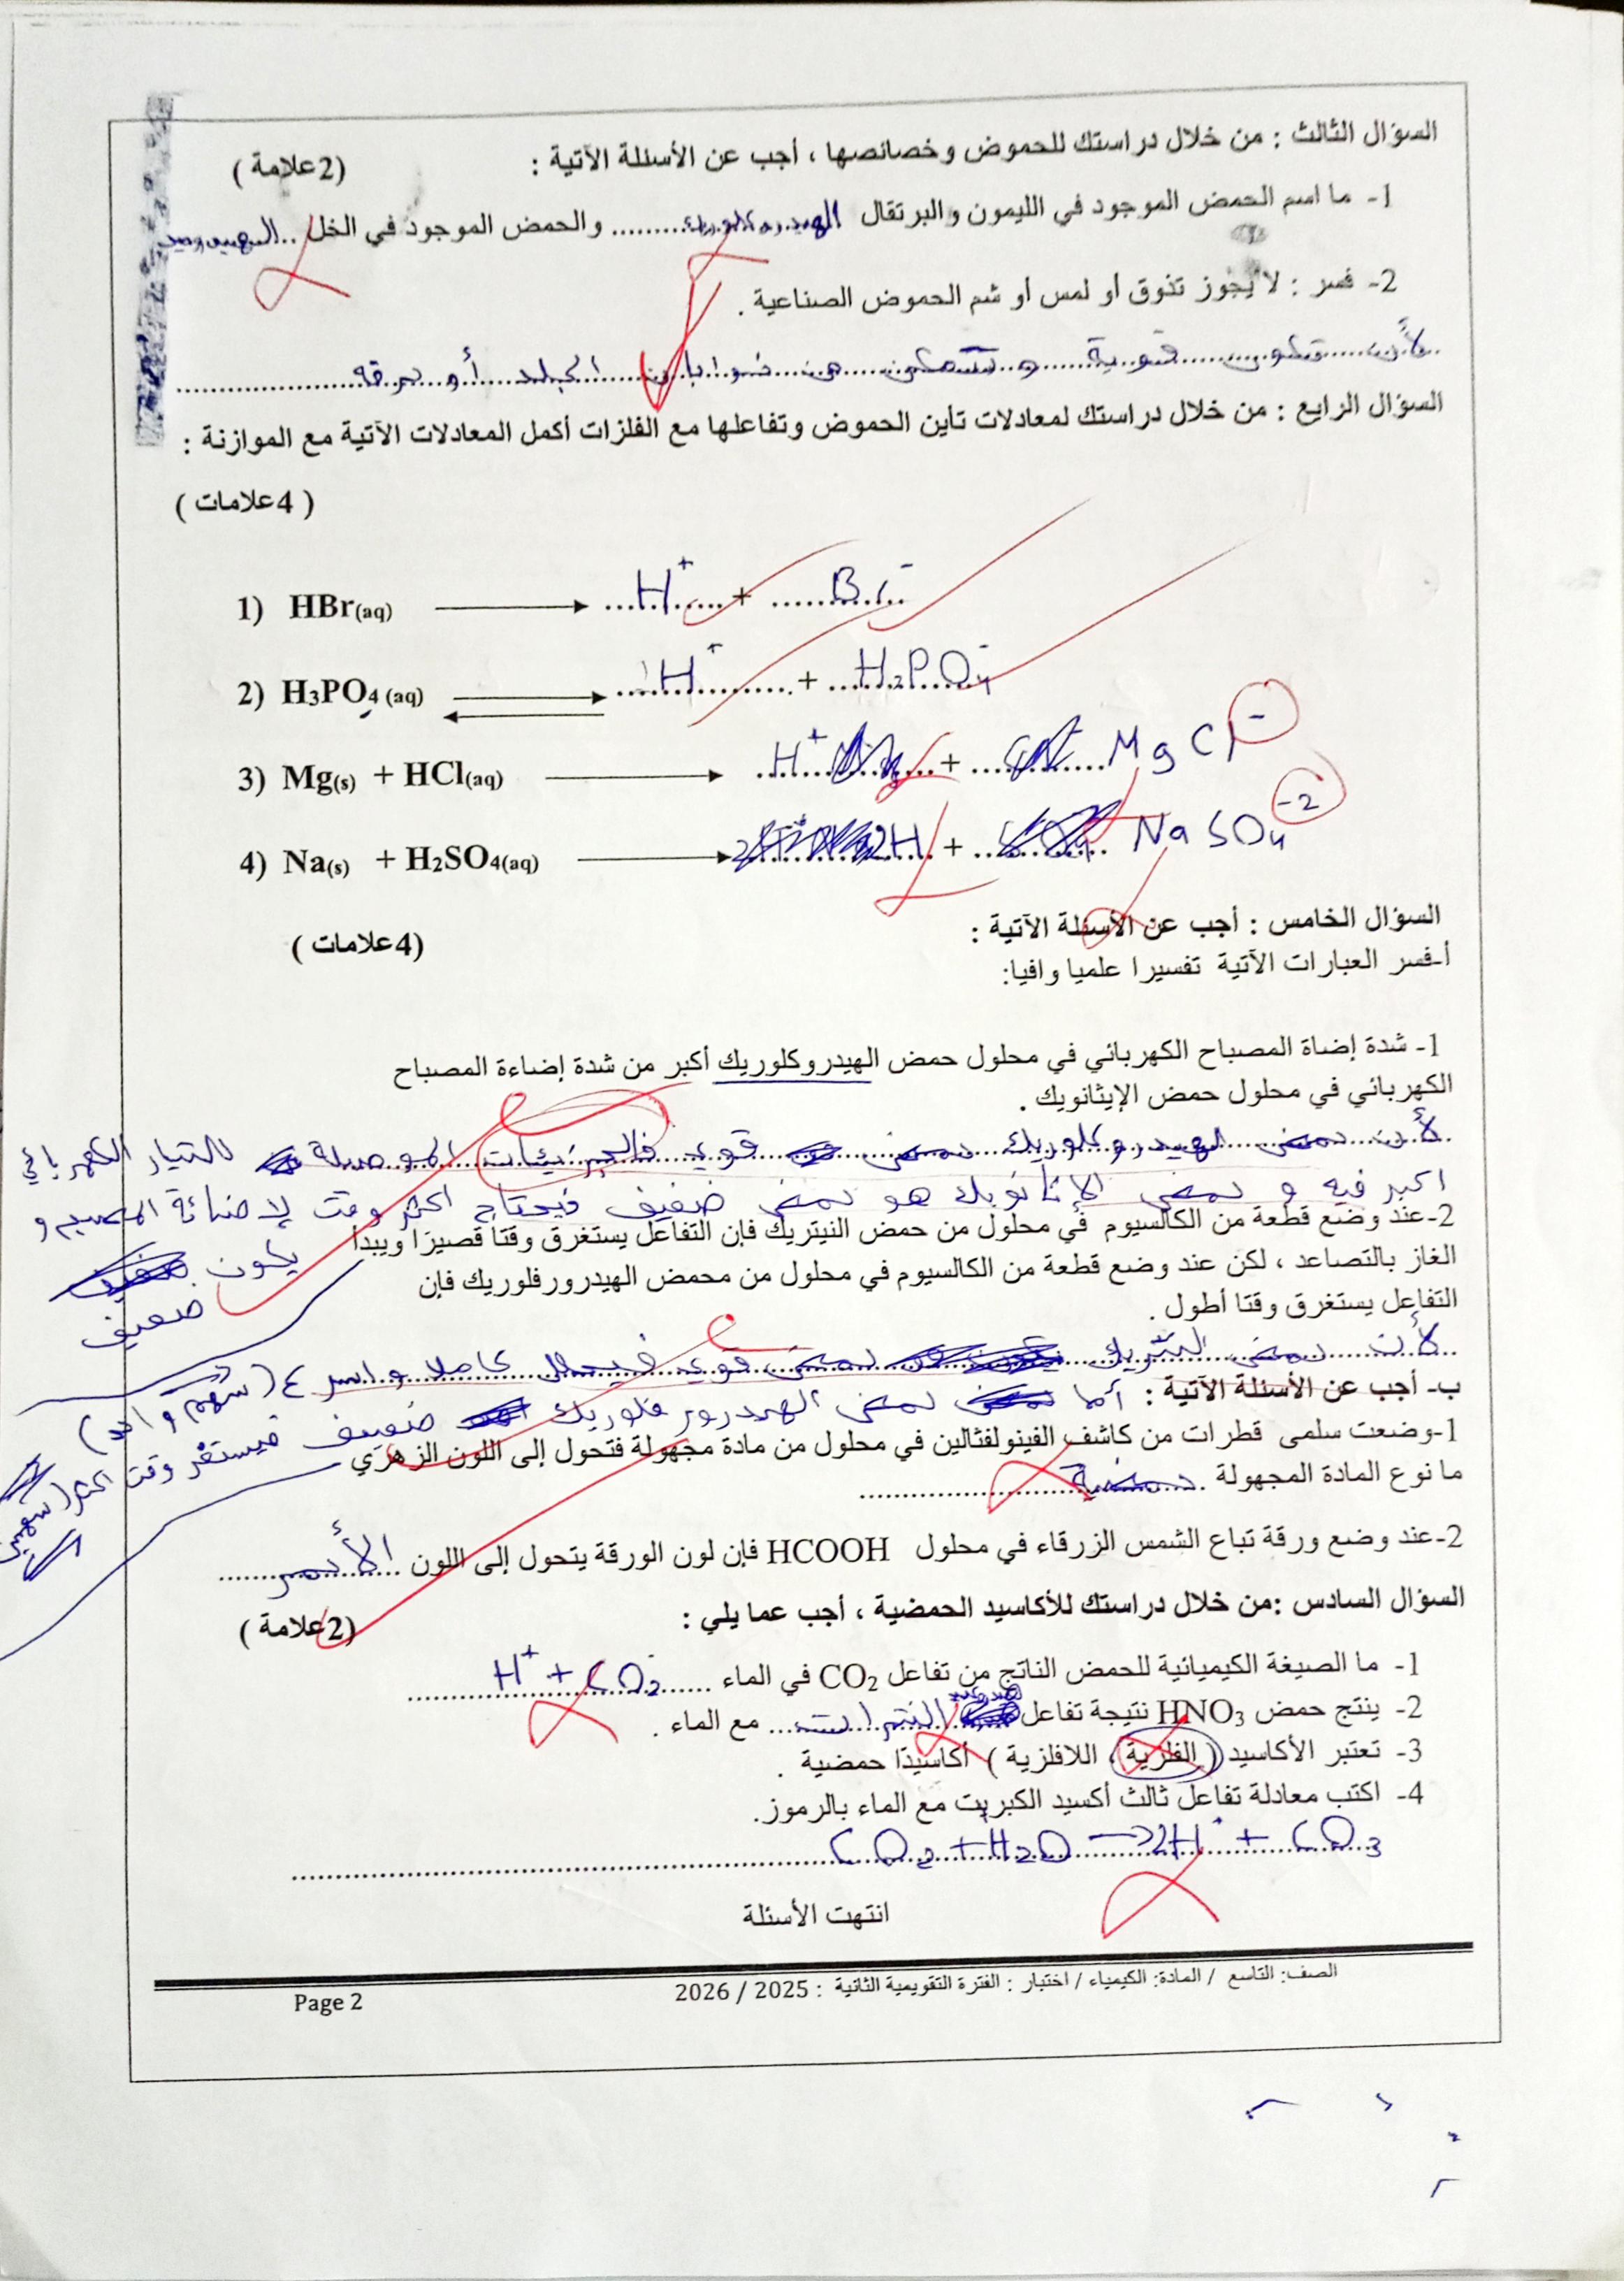 السؤال الثالث : من خلال دراستك للحموض وخصائصها ، أجب عن الأسئلة الآتية : (2علامة )
1- ما اسم الحمض الموجود في الليمون والبرتقال الهيدروكلوريك......... والحمض الموجود في الخل ..
2- فسر : لا يجوز تذوق أو لمس أو شم الحموض الصناعية .
لأن تكون قوية و تتمكن من ذوابان الجلد أو حرقه
السؤال الرابع : من خلال دراستك لمعادلات تأين الحموض وتفاعلها مع الفلزات أكمل المعادلات الآتية مع الموازنة :
( 4علامات )
1) HBr(aq) → H⁺ + Br⁻
2) H₃PO₄ (aq) ⇄ H⁺ + H₂PO₄⁻
3) Mg(s) + HCl(aq) → H⁺ + MgCl⁻
4) Na(s) + H₂SO₄(aq) → 2H + NaSO₄⁻²
السؤال الخامس : أجب عن الأسئلة الآتية : (4علامات )
أ-فسر العبارات الآتية تفسيرا علميا وافيا:
1- شدة إضاة المصباح الكهربائي في محلول حمض الهيدروكلوريك أكبر من شدة إضاءة المصباح
الكهربائي في محلول حمض الإيثانويك .
لأن حمض الهيدروكلوريك حمض قوي فالجزيئات الموصلة للتيار الكهربائي
اكبر فيه و حمض الإيثانويك هو حمض ضعيف فيحتاج اكثر وقت لإضائة المصبح و
يكون ضعيف
2-عند وضع قطعة من الكالسيوم في محلول من حمض النيتريك فإن التفاعل يستغرق وقتا قصيرا ويبدا
الغاز بالتصاعد ، لكن عند وضع قطعة من الكالسيوم في محلول من محمض الهيدرورفلوريك فإن
التفاعل يستغرق وقتا أطول .
لأن حمض النتريك حمض قوي فيتحلل كاملا واسرع (سهم واحد)
ب- أجب عن الأسئلة الآتية :
أما حمض الهيدرور فلوريك ضعيف فيستغر وقت اكثر (سهمين
1-وضعت سلمى قطرات من كاشف الفينولفثالين في محلول من مادة مجهولة فتحول إلى اللون الزهري
ما نوع المادة المجهولة . حمضية
2-عند وضع ورقة تباع الشمس الزرقاء في محلول HCOOH فإن لون الورقة يتحول إلى اللون الأحمر
السؤال السادس :من خلال دراستك للأكاسيد الحمضية ، أجب عما يلي : (2علامة )
1- ما الصيغة الكيميائية للحمض الناتج من تفاعل CO₂ في الماء H⁺ + CO₂⁻
2- ينتج حمض HNO₃ نتيجة تفاعل النترات ... مع الماء .
3- تعتبر الأكاسيد ( الفلزية ، اللافلزية ) أكاسيدًا حمضية .
4- اكتب معادلة تفاعل ثالث أكسيد الكبريت مع الماء بالرموز.
CO₂ + H₂O → 2H⁺ + CO₃
انتهت الأسئلة
الصف: التاسع / المادة: الكيمياء / اختبار : الفترة التقويمية الثانية : 2025 / 2026
Page 2